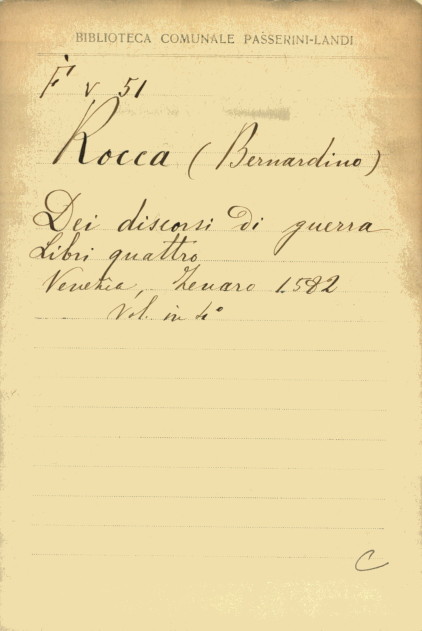 BIBLIOTECA COMUNALE PASSERINI-LANDI
F v 51
Rocca (Bernardino)
Dei discorsi di guerra
Libri quattro
Venezia, Zenaro 1582
Vol. in 4°
C